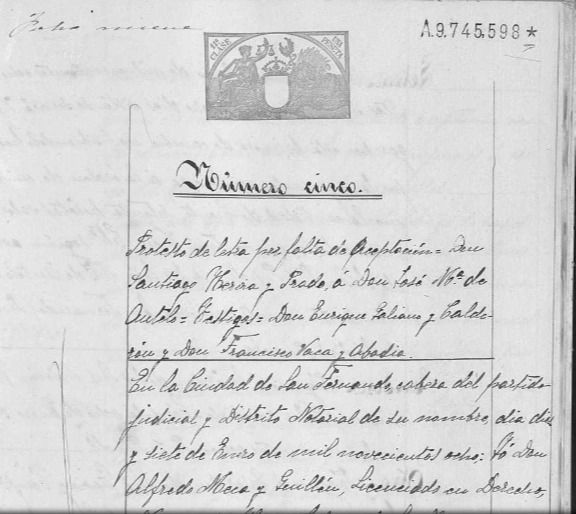 A.9.745.598*
11ª CLASE
UNA PESETA
Número cinco.
Protesto de letra por falta de Aceptación = Don
Santiago y Prado, á Don José Mª de
Antelo = Testigos = Don Enrique Galiano y Calde-
rón y Don Francisco Vaca y Abadia.
En la Ciudad de San Fernando, cabeza del partido
judicial y Distrito Notarial de su nombre, dia diez
y siete de Enero de mil novecientos ocho: Yó Don
Alfredo y Guillén, Licenciado en Derecho,